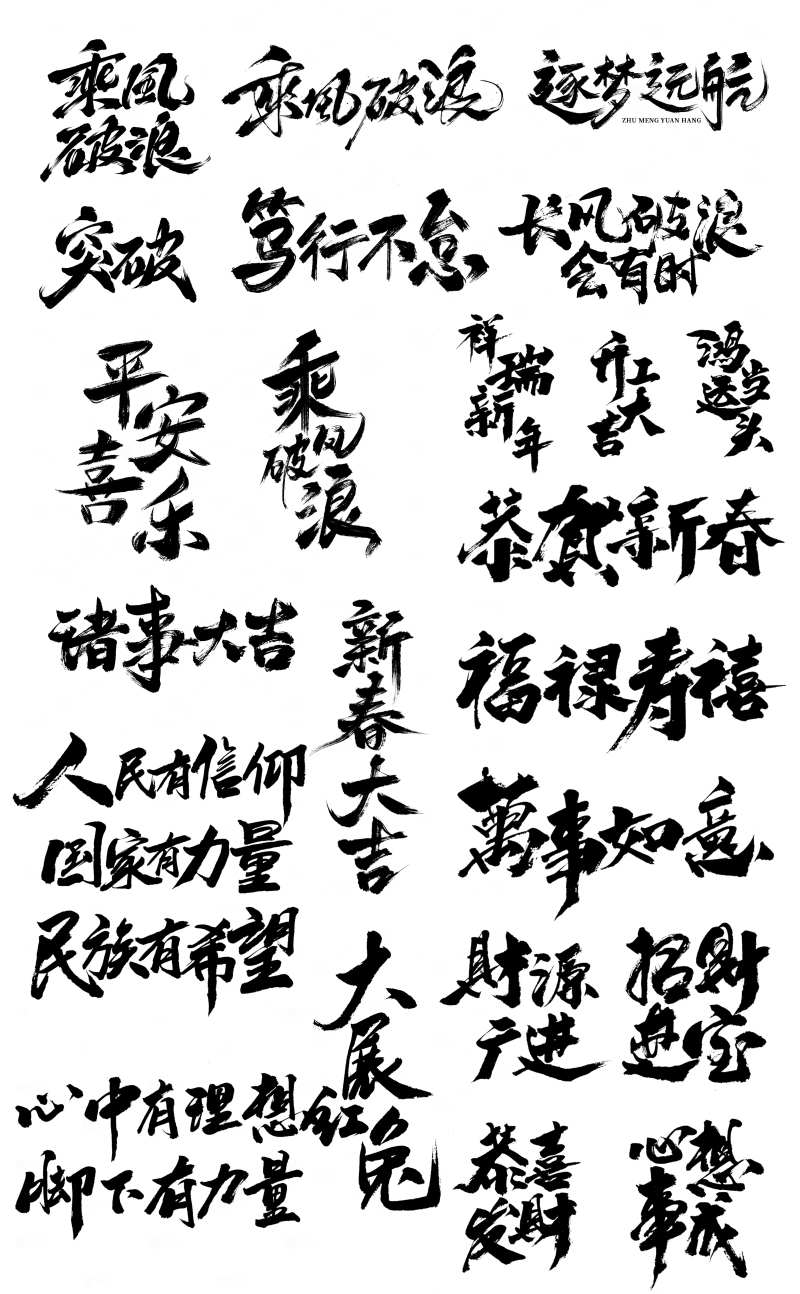 乘風
破浪
乘風破浪
逐梦远航
ZHU MENG YUAN HANG
突破
笃行不怠
长风破浪
会有时
平安
喜乐
乘风
破浪
祥瑞
新年
开工
大吉
鸿运
当头
恭贺新春
诸事大吉
新春大吉
福禄寿禧
人民有信仰
国家有力量
民族有希望
萬事如意
大展红兔
財源
广进
招財
进宝
心中有理想
脚下有力量
恭喜
发財
心想
事成